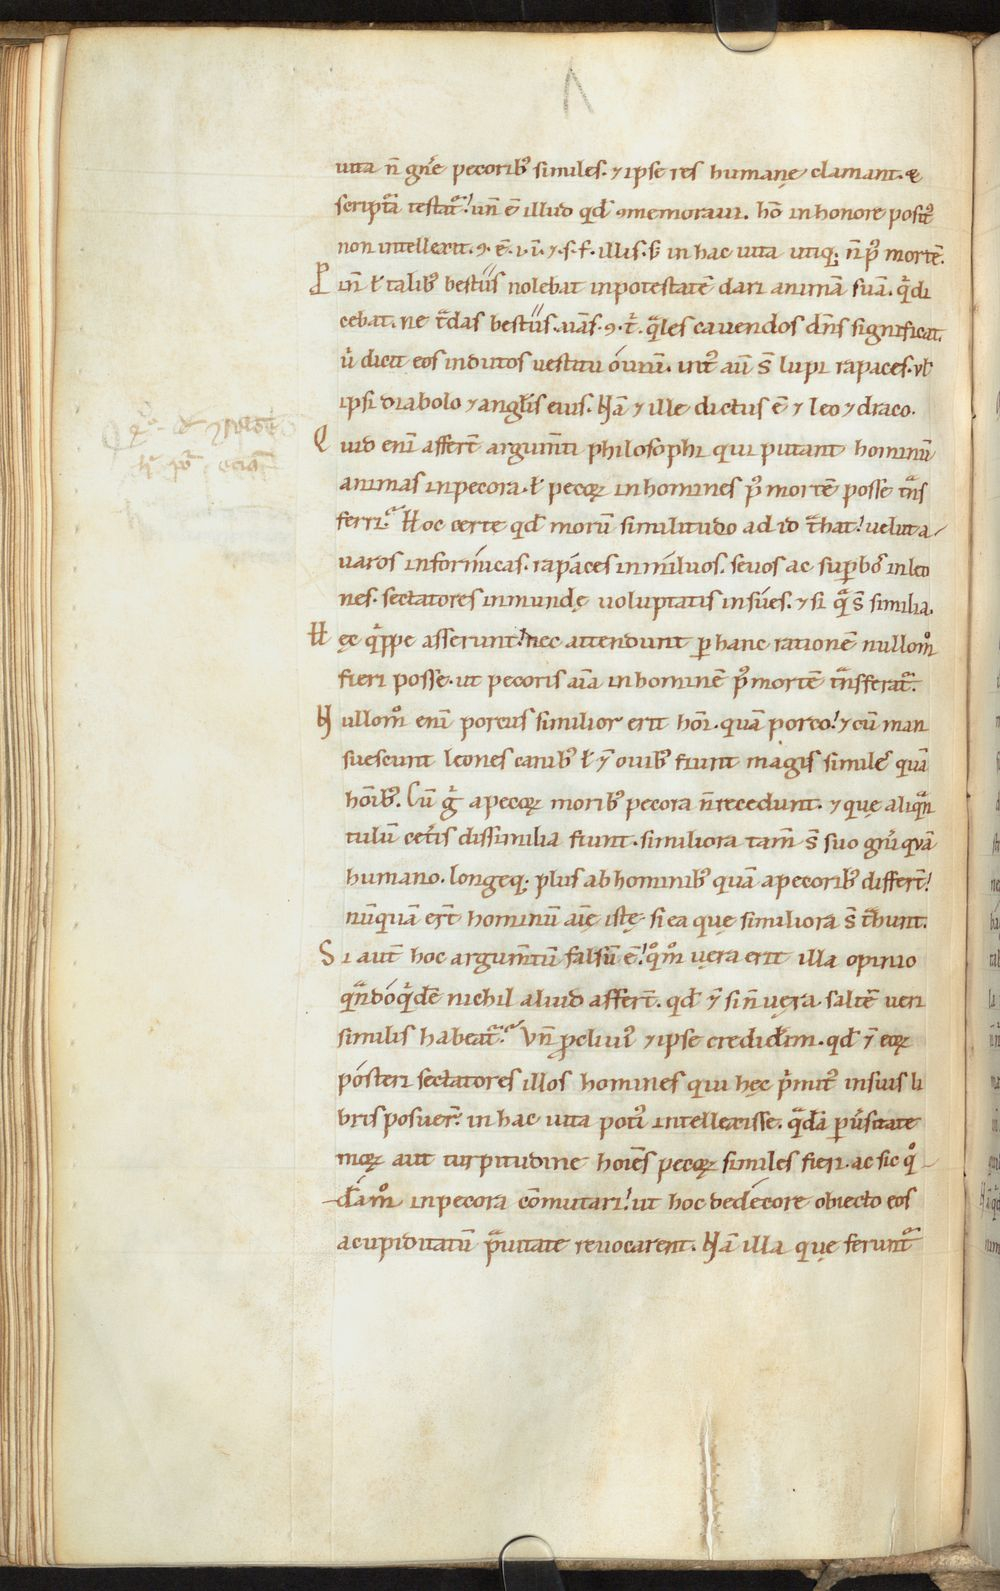 uita n̄ gn̄e pecorib; similes. ⁊ ipse res humanę clamant. &
scriptᷓa testatᷓ! un̄ ē illud qd̄ ꝯmemoraui. hō in honore positꝰ
non intellexit. ꝯ. ē. i. ī. ⁊. s. f. illis. s; in hac uita utiq; n̄ pꝰ mortē.
P in̄ ł talib; bestiis nolebat in potestatē dari animā suā. qᷓ di
cebat. ne tᷓdas bestiis. aīas. ꝯ. t̄. qᷓles cauendos dn̄s significat.
ú dicit eos indutos uestitu ouiū. intꝰ aū s̄ lupi rapaces. ul̄
ipsi diabolo ⁊ angl̄is eius. Nā ⁊ ille dictus ē ⁊ leo ⁊ draco.
Q uid enī afferēt argum̄ti philosophi qui putant hominū
animas in pecora. ł pecoꝝ in homines pꝰ mortē posse tᷓns
ferri. Hoc certe qd̄ morū similitudo ad id tᷓhat! uelut a
uaros in formicas. rapáces in míluos. seuos ac suꝑbos in leo
nes. sectatores inmundę uoluptatis in súes. ⁊ si qᷓ s̄ similia.
H ęc qippe asserunt! nec attendunt ꝑ hanc rationē nullomͦ
fieri posse. ut pecoris aīa in hominē pꝰ mortē tᷓnsferatᷓ.
N ullomͦ enī porcus similior erit hōi. quā porco! ⁊ cū man
suescunt leones canib; ł ⁊̄ ouib; fiunt magis similes quā
hōib;. Cū g̊ a pecoꝝ morib; pecora n̄ recedunt. ⁊ quę aliqᷓn
tulū cet̄is dissimilia fiunt. similiora tam̄ s̄ suo gn̄i quā
humano. longeq; plus ab hominib; quā a pecorib; differt̄!
nūquā ert̄ hominū aīę istę. si ea quę similiora s̄ tᷓhunt.
S i aut̄ hoc argum̄tū falsū ē! qͦmͦ uera erit illa opinio
qᷓndóqidē nichil aliud affert̄. qd̄ ⁊̄ si n̄ uęra. saltē ueri
similis habeatᷓ. Vn̄ ꝓcliuiꝰ ⁊ ipse crediderim. qd̄ ⁊̄ eoꝝ
pósteri sectatores illos homines qui hęc pimitꝰ in suis li
bris posuer̄. in hac uita potiꝰ intellexisse. qᷓdā ꝑúsitate
moꝝ aut turpitudine hoīes pecoꝝ similes fieri. ac sic qͦ
dāmͦ in pecora cōmutari! ut hoc dedécore obiecto eos
a cupiditatū pᷓuitate reuocarent. Nā illa quę feruntᷓ